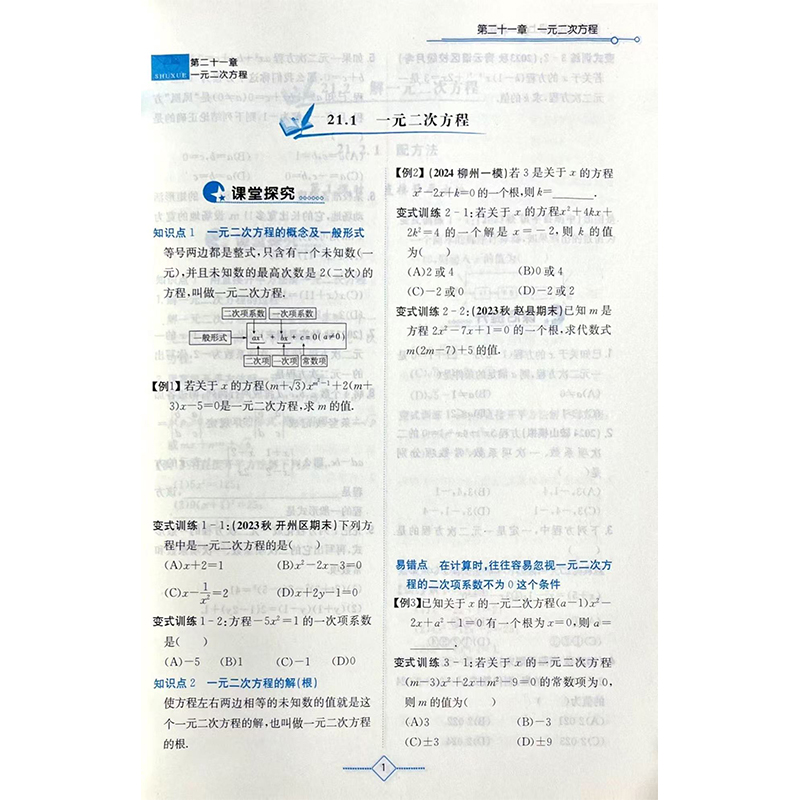 第二十一章 一元二次方程
SHUXUE
第二十一章
一元二次方程
21.1 一元二次方程
课堂探究
知识点1 一元二次方程的概念及一般形式
等号两边都是整式,只含有一个未知数(一
元),并且未知数的最高次数是2(二次)的
方程,叫做一元二次方程.
二次项系数 一次项系数
一般形式 ax²+bx+c=0(a≠0)
二次项 一次项 常数项
【例1】若关于x的方程(m+√3)x^{m²-1}+2(m+
3)x-5=0是一元二次方程,求m的值.
变式训练1-1:(2023秋 开州区期末)下列方
程中是一元二次方程的是( )
(A)x+2=1 (B)x²-2x-3=0
(C)x-1/x²=2 (D)x+2y-1=0
变式训练1-2:方程-5x²=1的一次项系数
是( )
(A)-5 (B)1 (C)-1 (D)0
知识点2 一元二次方程的解(根)
使方程左右两边相等的未知数的值就是这
个一元二次方程的解,也叫做一元二次方程
的根.
【例2】(2024 柳州一模)若3是关于x的方程
x²-2x+k=0的一个根,则k=______.
变式训练2-1:若关于x的方程x²+4kx+
2k²=4的一个解是x=-2,则k的值
为( )
(A)2或4 (B)0或4
(C)-2或0 (D)-2或2
变式训练2-2:(2023秋 赵县期末)已知m是
方程2x²-7x+1=0的一个根,求代数式
m(2m-7)+5的值.
易错点 在计算时,往往容易忽视一元二次方
程的二次项系数不为0这个条件
【例3】已知关于x的一元二次方程(a-1)x²-
2x+a²-1=0有一个根为x=0,则a=
______.
变式训练3-1:若关于x的一元二次方程
(m-3)x²+2x+m²-9=0的常数项为0,
则m的值为( )
(A)3 (B)-3
(C)±3 (D)±9
1